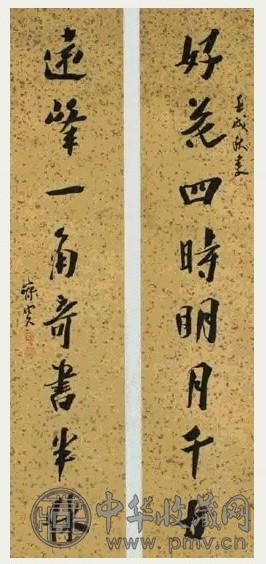 好花四時明月千
壬戌秋
遠峯一角奇書半
中华收藏网
www.pmv.cn